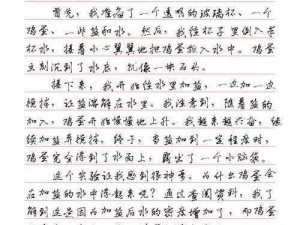 首先，我准备了一个透明的玻璃杯、一个
鸡蛋、一些盐和水。然后，我往杯子里倒入半
杯水，接着小心翼翼地把鸡蛋放入水中。鸡蛋
立刻沉到了水底，就像一块石头。
接下来，我开始往水里加盐，一边加一边
搅拌，让盐溶解在水里。我注意到，随着盐的
加入，鸡蛋开始慢慢地上升。我越来越兴奋，继
续加盐并搅拌。终于，当盐加到一定程度时，
鸡蛋完全浮到了水面上，露出了一个小脑袋。
这个实验让我感到很神奇。为什么鸡蛋会
在加盐的水中浮起来呢？通过查阅资料，我了
解到这是因为加盐后水的密度增加了，而鸡蛋